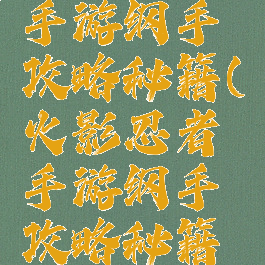 手游纲手
攻略秘籍(
火影忍者
手游纲手
攻略秘籍